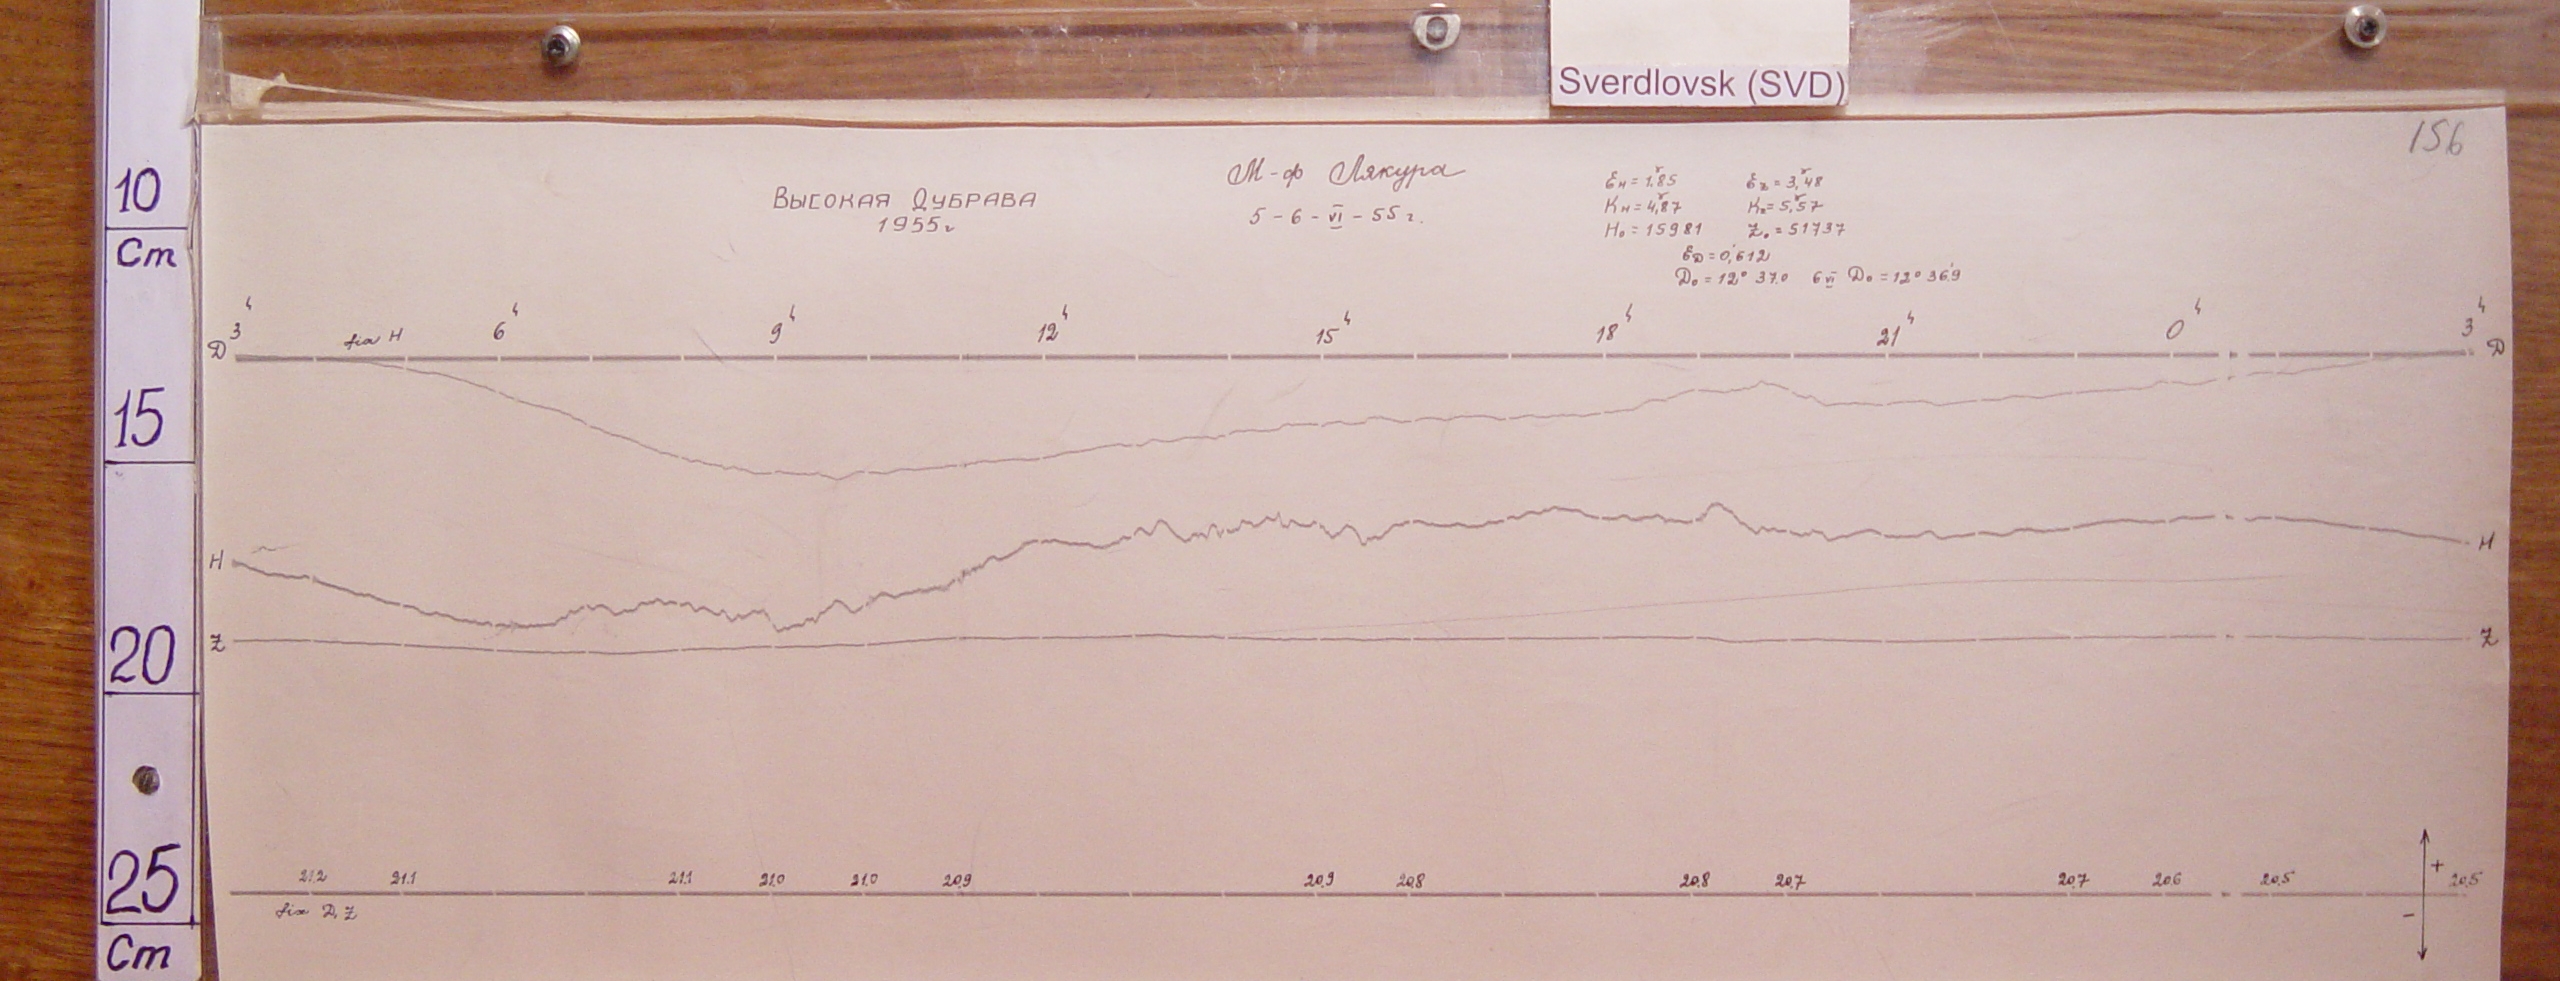 Sverdlovsk (SVD)
156
10
Cm
15
20
25
Cm
ВЫСОКАЯ ДУБРАВА
1955г
М-ф Лякура
5 - 6 - VI - 55 г.
εн = 1,85 εz = 3,48
Kн = 4,87 Kz = 5,57
H₀ = 15981 Z₀ = 51737
εD = 0,612
D₀ = 12° 37.0 6 VI D₀ = 12° 36.9
3ч fix H 6ч 9ч 12ч 15ч 18ч 21ч 0ч 3ч
D D
H H
Z Z
21.2 21.1 21.1 21.0 21.0 20.9 20.9 20.8 20.8 20.7 20.7 20.6 20.5 20.5
fix D, Z
+
−